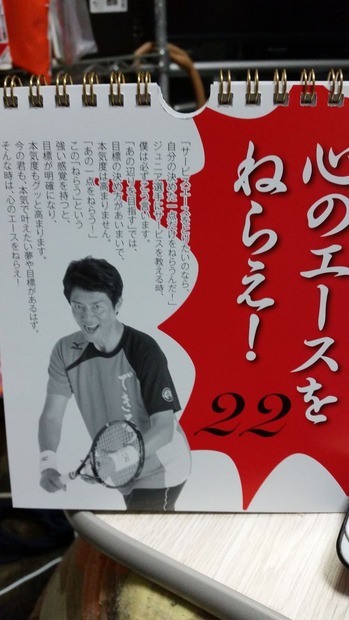 心のエースを
ねらえ!
22
「サービスエースをとりたいのなら、
自分の決めた一点だけをねらうんだ!」
ジュニア選手にサービスを教える時、
僕は必ずこう言います。
「あの辺りを目指す」では、
目標の決め方があいまいで、
本気度は高まりません。
「あの一点をねらう!」
この「ねらう」という
強い感覚を持つと、
目標が明確になり、
本気度もグッと高まります。
今の君も、本気で叶えたい夢や目標があるはず。
そんな時は、心のエースをねらえ!